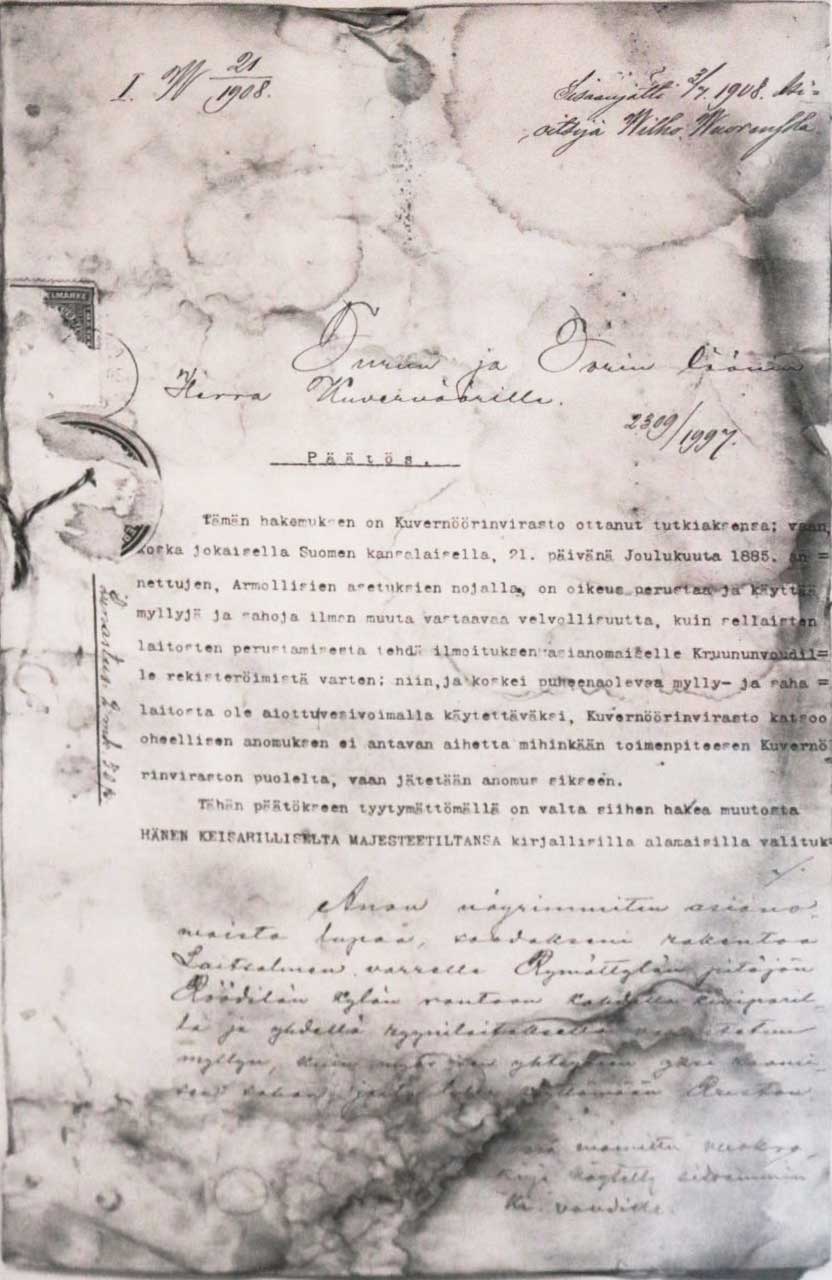 I. W 21/1908.
Sisäänjätti 3/7. 1908. Asi=
oitsija Wilho
ELMARKE
Turun ja Porin läänin
Herra Kuvernöörille.
2309/1997.
Päätös.
Tämän hakemuksen on Kuvernöörinvirasto ottanut tutkiaksensa; vaan,
koska jokaisella Suomen kansalaisella, 21. päivänä Joulukuuta 1885. an =
nettujen, Armollisien asetuksien nojalla, on oikeus perustaa ja käyttää
myllyjä ja sahoja ilman muuta vastaavaa velvollisuutta, kuin sellaisten
laitosten perustamisesta tehdä ilmoituksen asianomaiselle Kruununvoudil=
le rekisteröimistä varten; niin, ja koskei puheenaolevaa mylly- ja saha =
laitosta ole aiottu vesivoimalla käytettäväksi, Kuvernöörinvirasto katsoo
oheellisen anomuksen ei antavan aihetta mihinkään toimenpiteesen Kuvernö
rinviraston puolelta, vaan jätetään anomus sikseen.
Tähän päätökseen tyytymättömällä on valta siihen hakea muutosta
HÄNEN KEISARILLISELTA MAJESTEETILTANSA kirjallisilla alamaisilla valituk
Lunastus 2 mk
Anon nöyrimmiten asiano-
maista lupaa, saadakseni rakentaa
Laitsalmen varrelle Rymättylän pitäjän
Röödilän kylän rantaan kahdella kiviparil-
la ja yhdellä varustetun
myllyn, kuin myös sen yhteyteen
sen sahan,
mainittu vuokra-
kirja käytetty
kr. voudille.